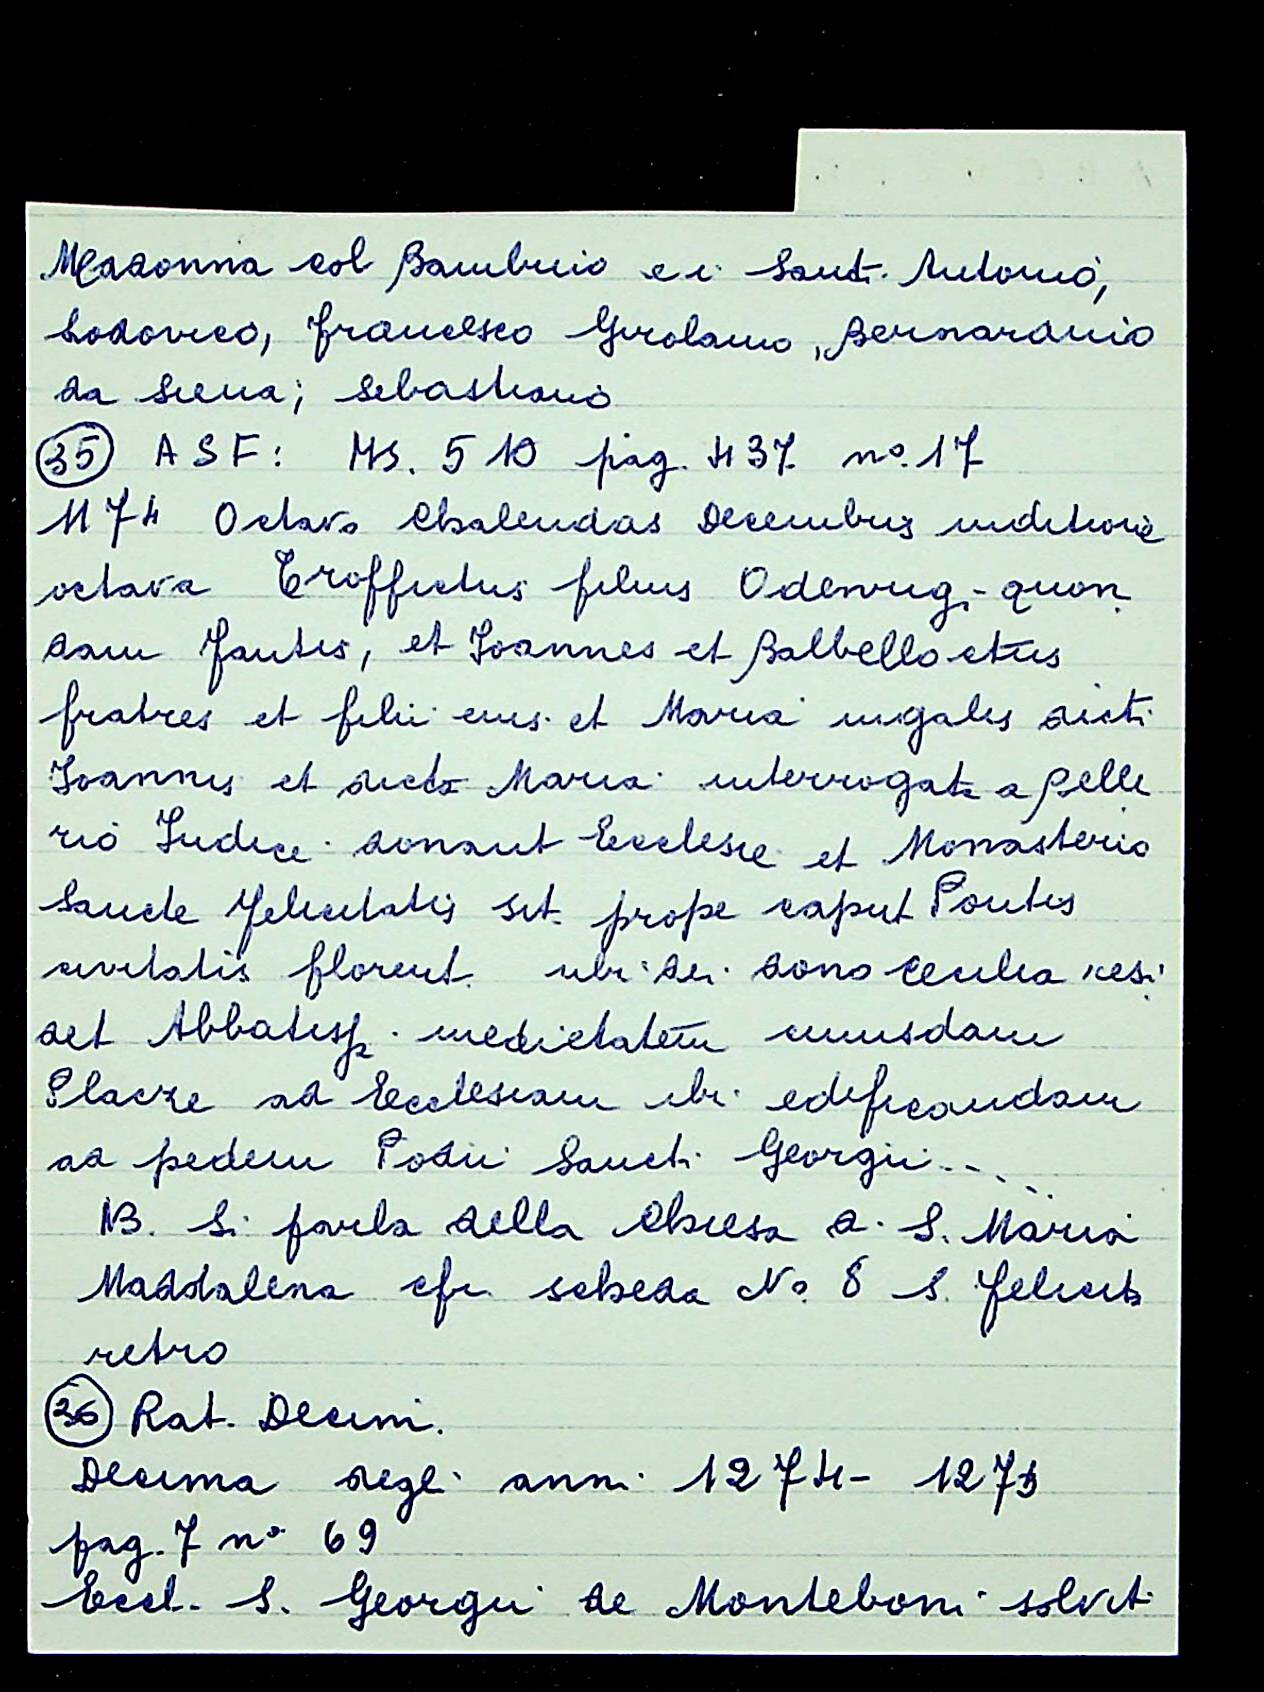 Madonna col Bambino e i Santi Antonio,
Lodovico, Francesco Girolamo, Bernardino
da Siena; Sebastiano
(35) ASF: MS. 510 pag. 437 no. 17
1174 Octavo Chalendas Decembris inditione
octava Troffictus filius quon
dam Fantis, et Joannes et Balbelloctus
fratres et filii eius et Maria iugalis dicti
Joannis et dicta Maria interrogata a Pelle
rio Iudice donant Ecclesie et Monasterio
Sancte Felicitatis sit. prope caput Pontis
civitatis florent. ubi dei dono Cecilia resi
det Abbatissa medietatem cuiusdam
Placze ad Ecclesiam ibi edificandam
ad pedem Podii Sancti Georgii....
NB. Si parla della Chiesa di S. Maria
Maddalena cfr. scheda No. 8 S. Felicita
retro
(36) Rat. Decim.
Decima degli anni 1274 - 1275
pag. 7 no 69
Eccl. S. Georgii de Monteboni solvit